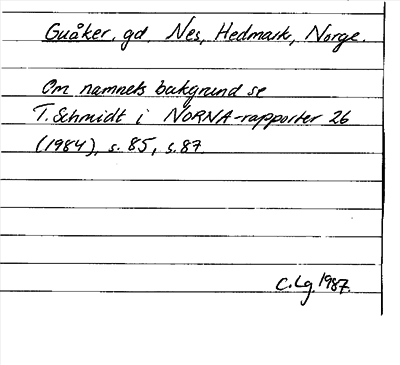 Guåker, gd. Nes, Hedmark, Norge.
Om namnets bakgrund se
T. Schmidt i NORNA-rapporter 26
(1984), s. 85, s. 87.
C. Lg. 1987.